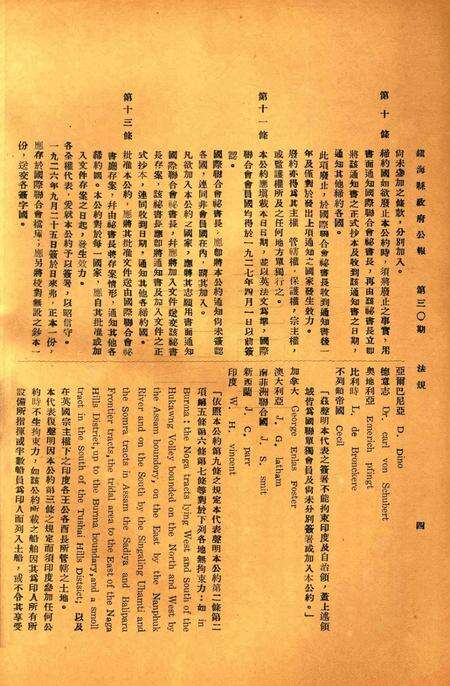 鎮海縣政府公報 第三〇期 法規 四
尚未參加之條款，分別加入。
第十條 締約國如欲廢止本公約時，須將廢止之事實，用
書面通知國際聯合會祕書長，再由該祕書長立即
將該通知書之正式抄本及收到該通知書之日期，
通知其他締約各國。
此項廢止，於國際聯合會祕書長收到通知書後一
年及僅對於發出上項通知之國家發生效力。
廢約亦得爲其主權，管轄權，保護權，宗主權，
或監護權所及之任何地方單獨行之。
第十一條 本公約應塡載本日日期，並以英法文爲準，國際
聯合會會員國均得於一九二七年四月一日以前簽
認。
國際聯合會祕書長，應卽將本公約通知尚未簽認
各國，連同非會員國在內，請其加入。
凡欲加入本公約之國家，應將其志願用書面通知
國際聯合會祕書長，幷應將加入文件送交該祕書
長存案，該祕書長應卽將通知書及加入文件之正
式抄本，連同收到日期，通知其他各締約國。
第十二條 批准本公約，應將其批准文件送由國際聯合會祕
書廳存案，幷由祕書長將存案情形，通知其他各
締約國。本公約對於每一國家，應自其批准或加
入文件存案之日起，發生效力。
各全權代表，爰就本公約予以簽署，以昭信守。
一九二六年九月二十五日簽於日來弗，正本一份，
應存於國際聯合會檔庫；應另將校對無訛之抄本一
份，送交各簽字國。
亞爾巴尼亞 D. Dino
德意志 Dr. carl von Schubert
奧地利亞 Emerich pflngt
比利時 L. de Bronckere
不列顛帝國 Cecil
「茲聲明本代表之簽署不能拘束印度及自治領，蓋上述領
域皆爲國聯單獨會員及尚未分別簽署或加入本公約。」
加拿大 George Eulas Foster
澳大利亞 J. G. latham
南菲洲聯合國 J. S. smit
新西蘭 J. C. parr
印度 W. H. vincent
「依照本公約第九條之規定本代表聲明本公約第二條第二
項第五條第六條第七條等對於下列各地無拘束力：如 in
Burma ; the Naga tracts lying West and South of the
Hukawng Volley bounded on the North and West by
the Assam boundary, on the East by the Nanphuk
River and on the South by the Singaling Uhamti and
the Somra tracts in Assam the Sadiya and Balipara
Frontier tracts, the tridal area to the East of the Naga
Hills District, up to the Burma boundary, and a smoll
tract in the South of the Tushai Hills Distsict；以及
在英國宗主權下之印度各王公各酋長所管轄之土地。
本代表復聲明因本公約第三條之規定而須印度參加任何公
約時不生拘束力，如該公約所載之船舶因其爲印人所有所
設備所指揮或半數船員爲印人而列入土船，或不令其享受